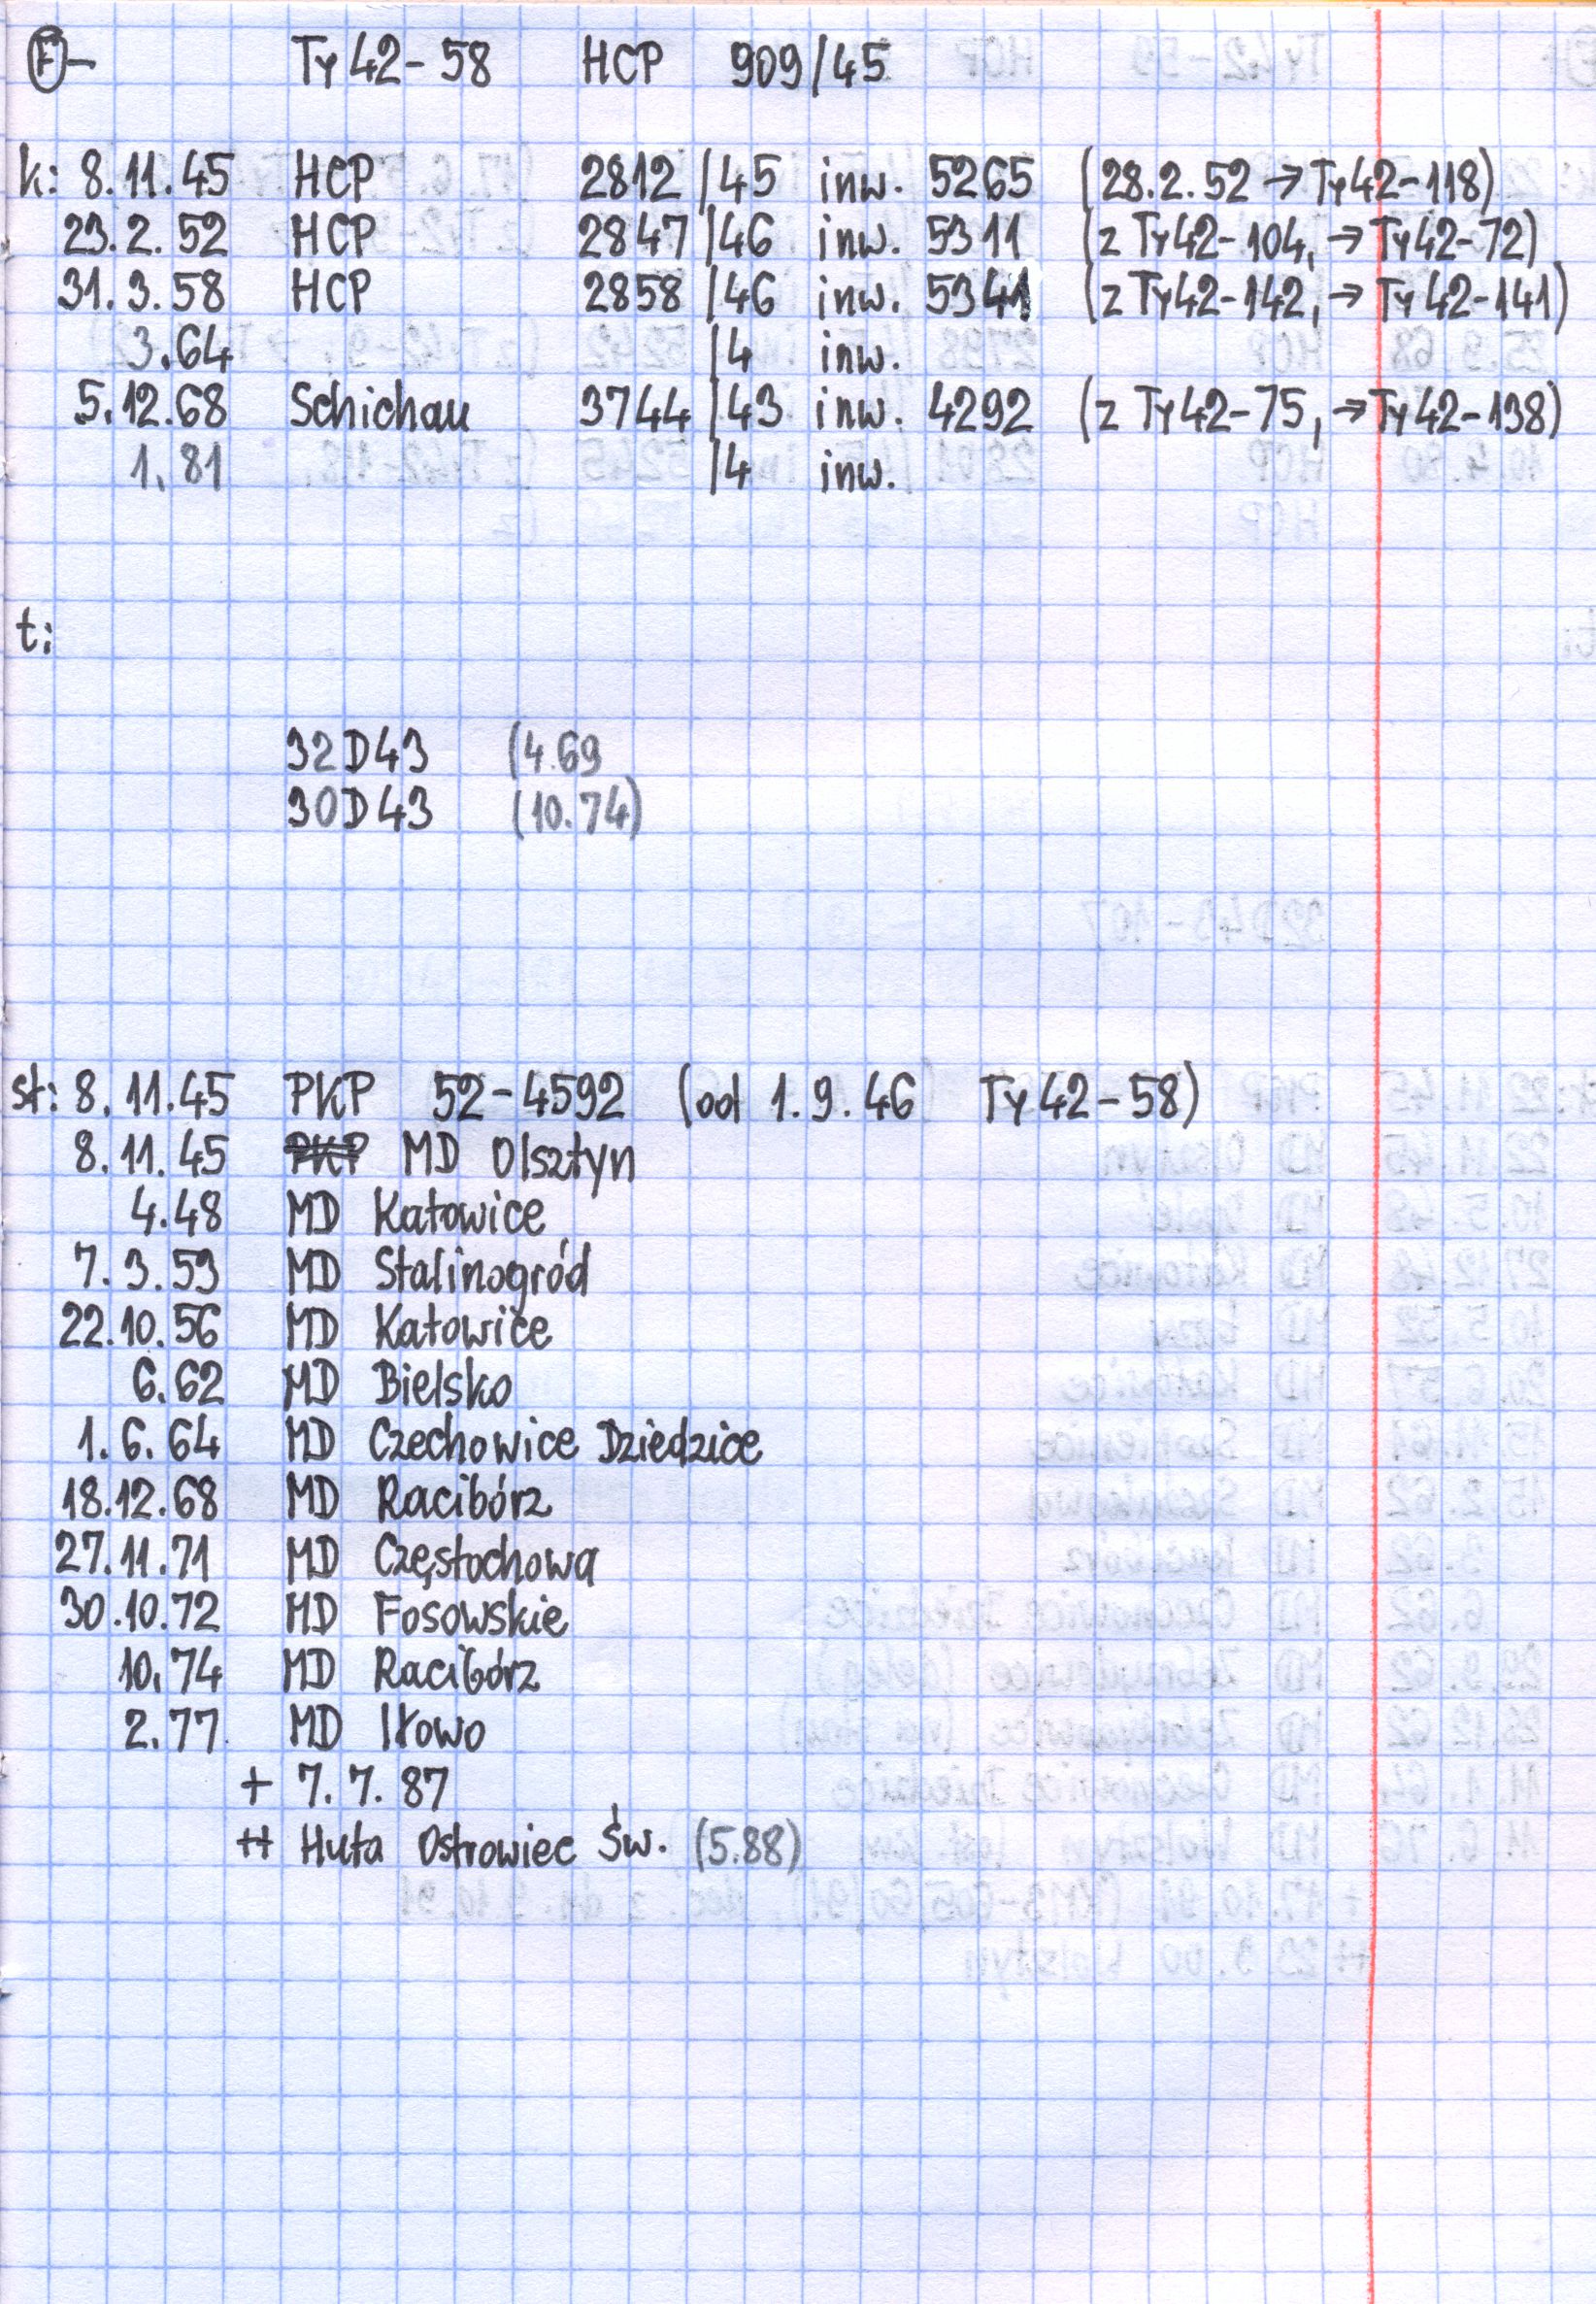 Ⓕ- Ty42-58 HCP 909/45
k: 8.11.45 HCP 2812/45 inw. 5265 (28.2.52 → Ty42-118)
23.2.52 HCP 2847/46 inw. 5311 (z Ty42-104, → Ty42-72)
31.3.58 HCP 2858/46 inw. 5341 (z Ty42-142, → Ty42-141)
3.64 /4 inw.
5.12.68 Schichau 3744/43 inw. 4292 (z Ty42-75, → Ty42-138)
1.81 /4 inw.
t:
32D43 (4.69
30D43 (10.74)
st: 8.11.45 PKP 52-4592 (od 1.9.46 Ty42-58)
8.11.45 PKP MD Olsztyn
4.48 MD Katowice
7.3.53 MD Stalinogród
22.10.56 MD Katowice
6.62 MD Bielsko
1.6.64 MD Czechowice Dziedzice
18.12.68 MD Racibórz
27.11.71 MD Częstochowa
30.10.72 MD Fosowskie
10.74 MD Racibórz
2.77 MD Iłowo
+ 7.7.87
++ Huta Ostrowiec Św. (5.88)